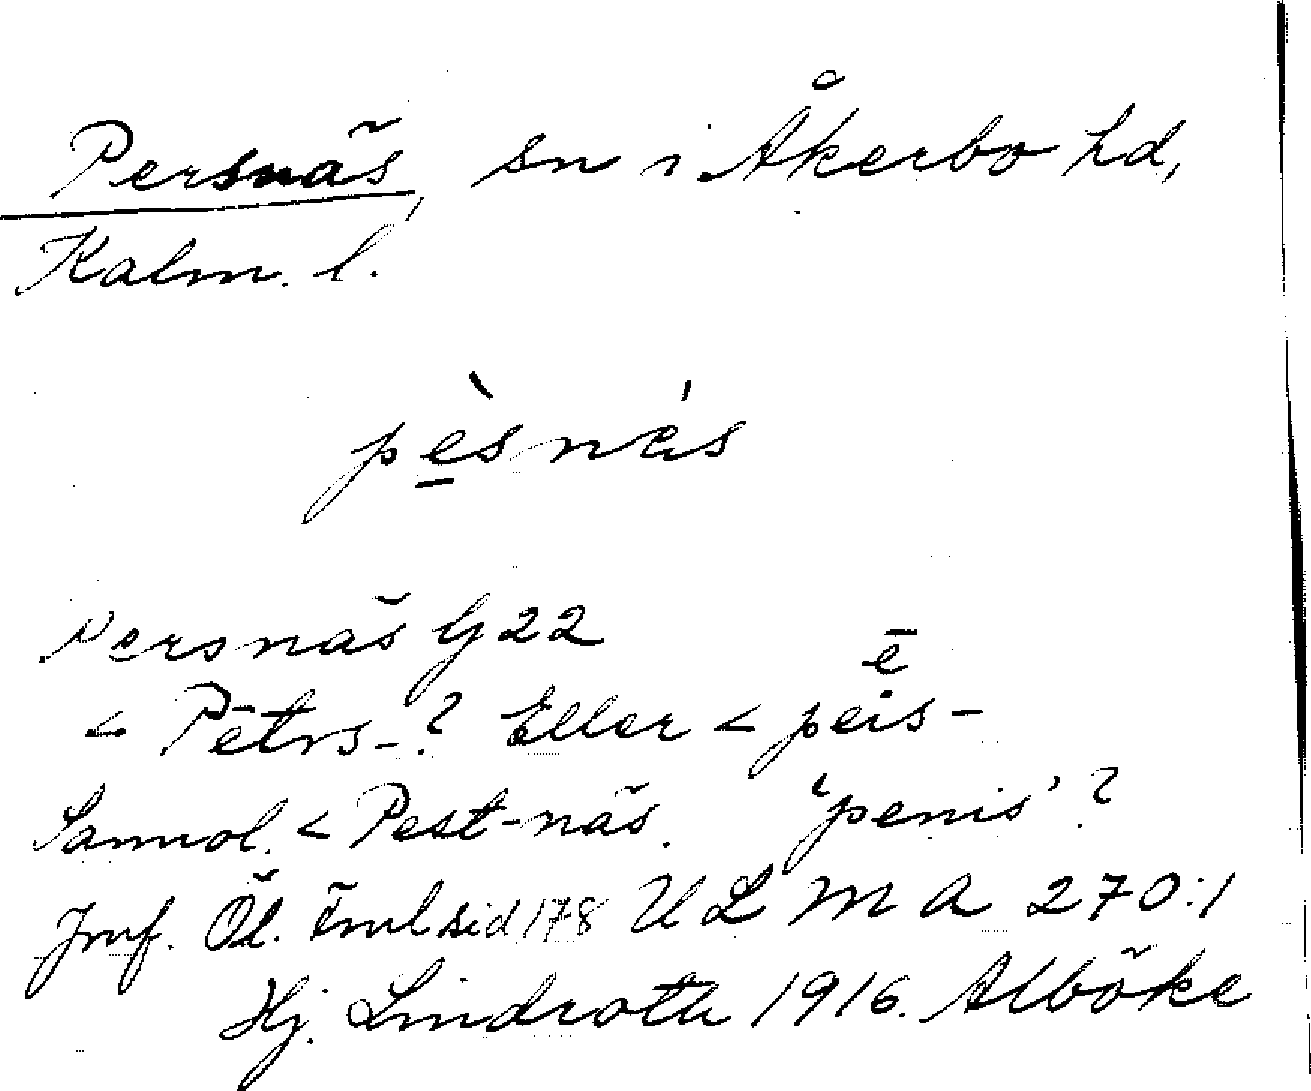 Persnäs, sn i Åkerbo hd,
Kalm. l.
pèsnás
Persnäs G 22
ē
< Pētrs-? Eller < peis-
Sannol. < Pest-näs. 'penis'?
Jmf. Öl. sid 178 ULMA 270:1
Hj. Lindroth 1916. Alböke